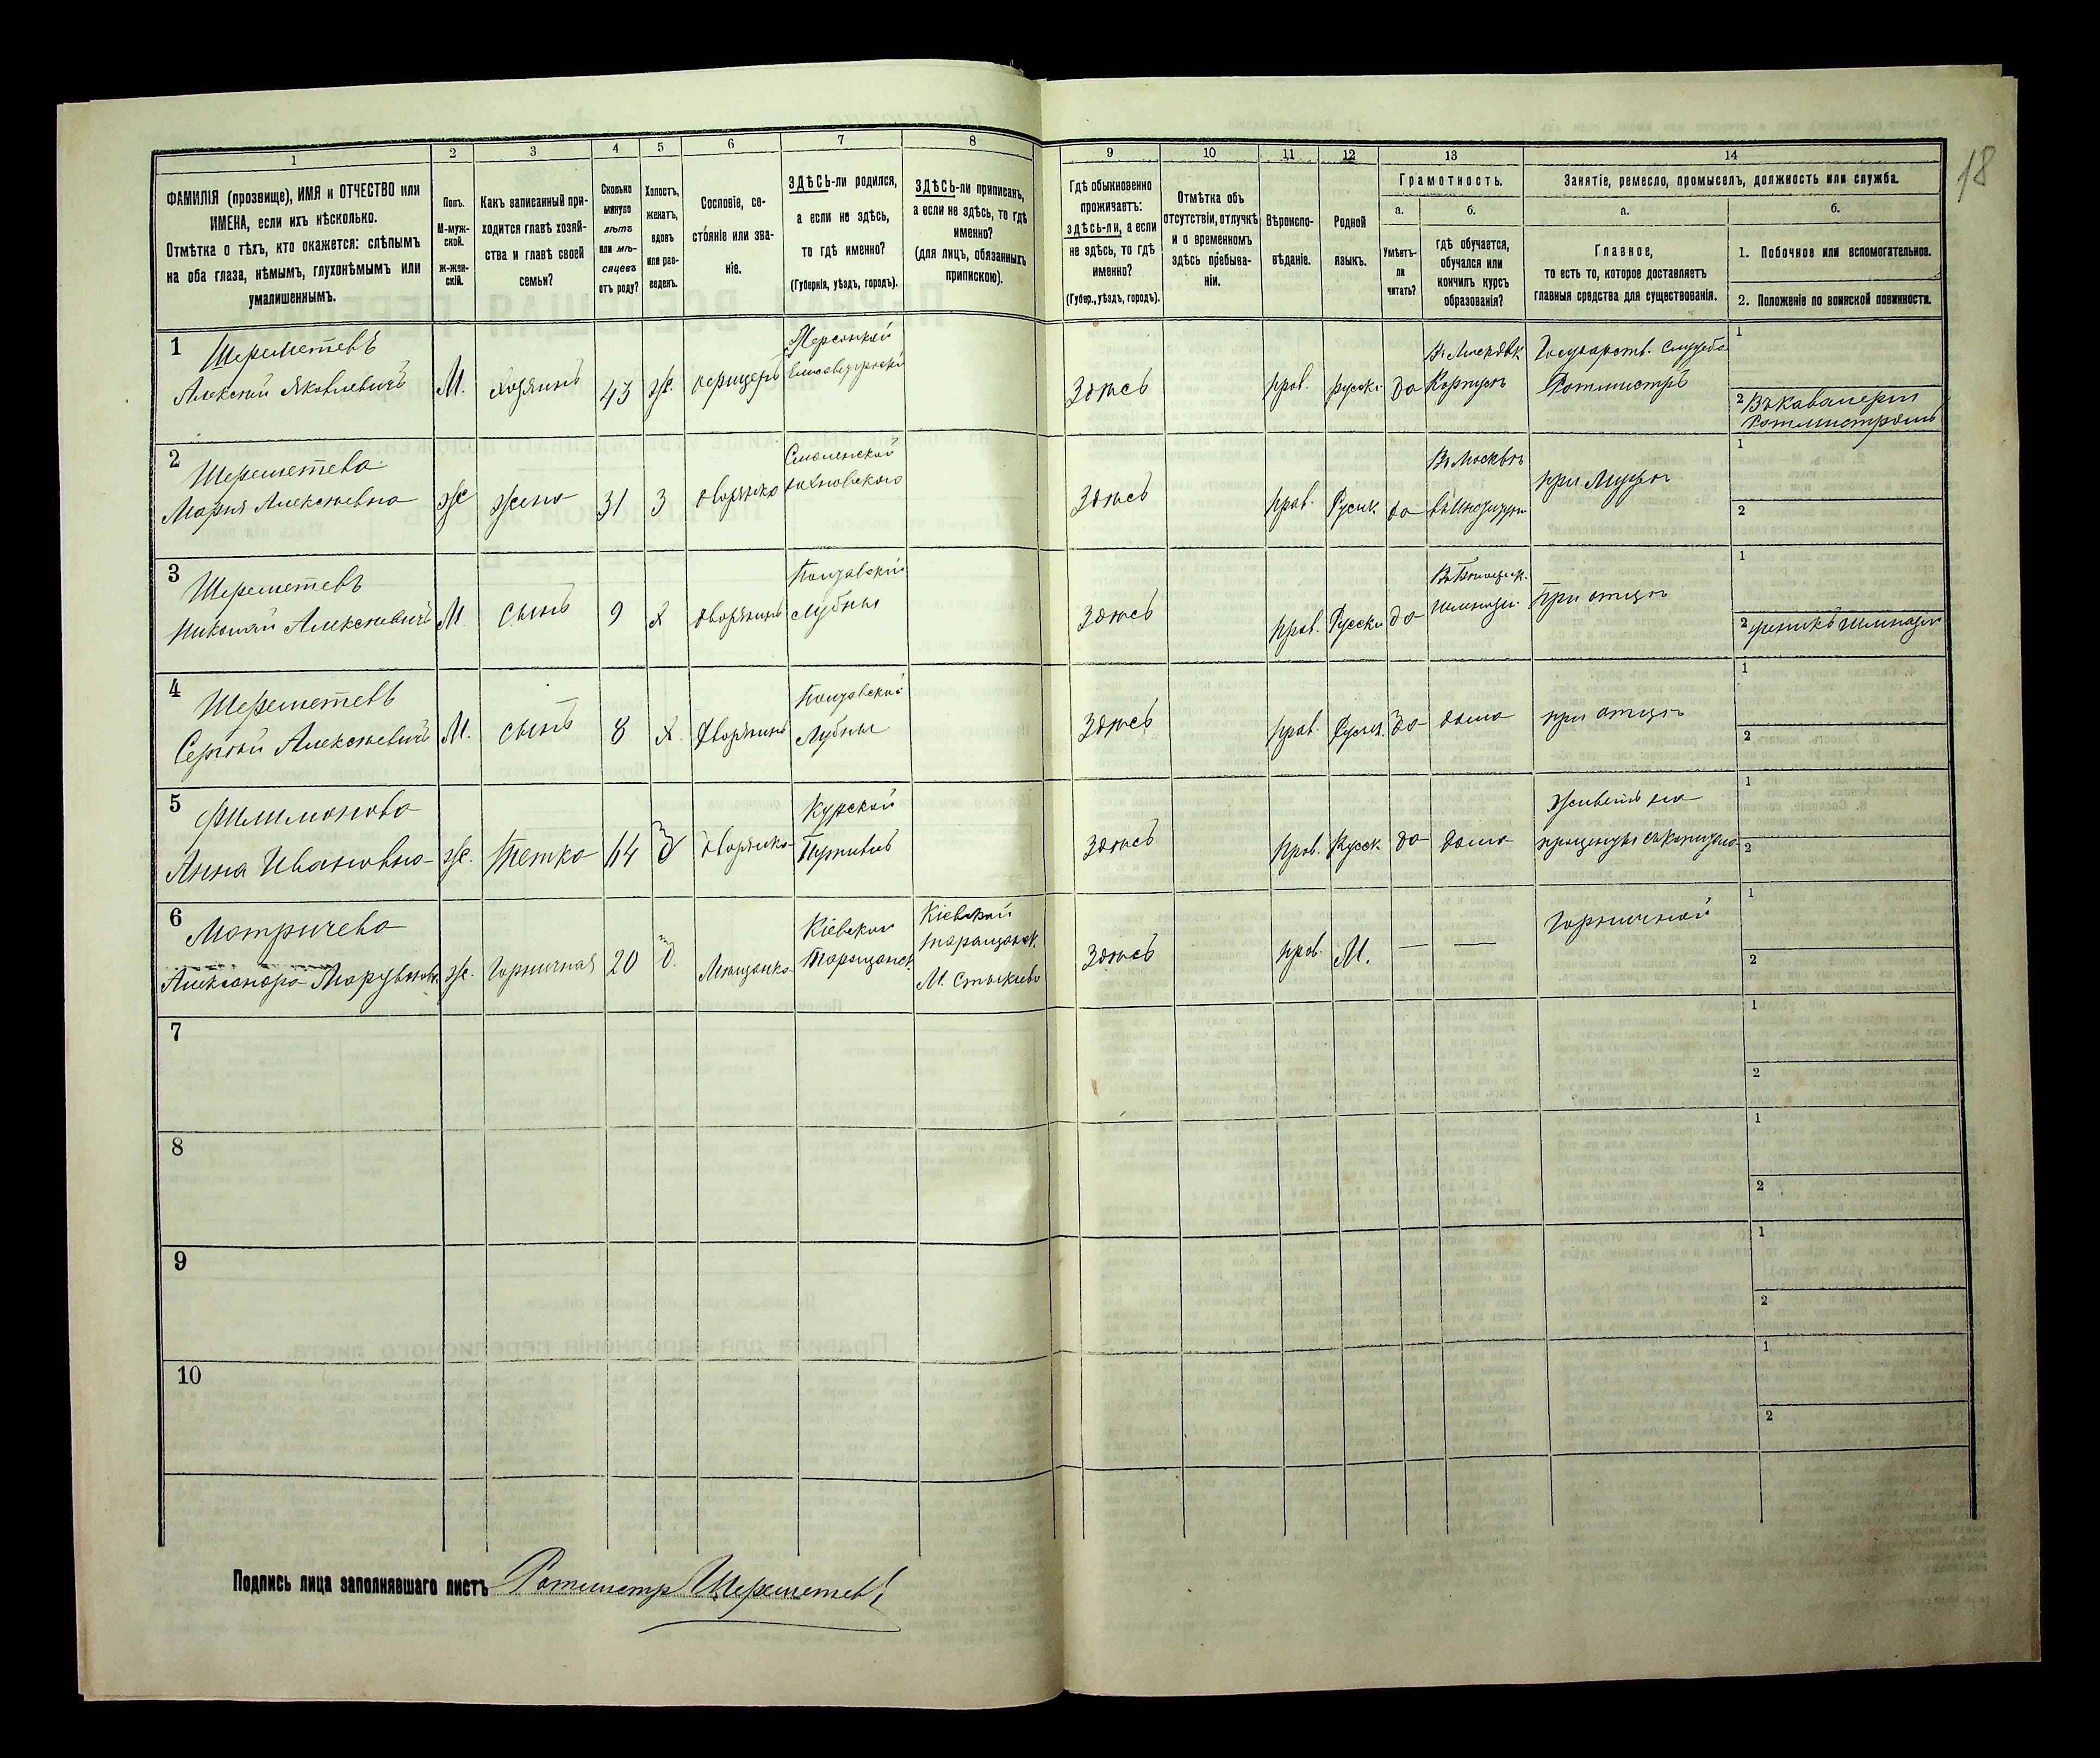 18
1 2 3 4 5 6 7 8 9 10 11 12 13 14
ФАМИЛІЯ (прозвище), ИМЯ и ОТЧЕСТВО или
ИМЕНА, если ихъ нѣсколько.
Отмѣтка о тѣхъ, кто окажется: слѣпымъ
на оба глаза, нѣмымъ, глухонѣмымъ или
умалишеннымъ.
Полъ.
М-муж-
ской.
ж-жен-
скій.
Какъ записанный при-
ходится главѣ хозяй-
ства и главѣ своей
семьи?
Сколько
минуло
лѣтъ
или мѣ-
сяцевъ
отъ роду?
Холостъ,
женатъ,
вдовъ
или раз-
веденъ.
Сословіе, со-
стояніе или зва-
ніе.
ЗДѢСЬ-ли родился,
а если не здѣсь,
то гдѣ именно?
(Губернія, уѣздъ, городъ).
ЗДѢСЬ-ли приписанъ,
а если не здѣсь, то гдѣ
именно?
(для лицъ, обязанныхъ
припискою).
Гдѣ обыкновенно
проживаетъ:
здѣсь-ли, а если
не здѣсь, то гдѣ
именно?
(Губер., уѣздъ, городъ).
Отмѣтка объ
отсутствіи, отлучкѣ
и о временномъ
здѣсь пребыва-
ніи.
Вѣроиспо-
вѣданіе.
Родной
языкъ.
Грамотность.
а.
Умѣетъ-
ли
читать?
б.
гдѣ обучается,
обучался или
кончилъ курсъ
образованія?
Занятіе, ремесло, промыселъ, должность или служба.
а.
Главное,
то есть то, которое доставляетъ
главныя средства для существованія.
б.
1. Побочное или вспомогательное.
2. Положеніе по воинской повинности.
1
Шереметевъ
Алексѣй Яковлевичъ
М.
Хозяинъ
43
ж.
офицеръ
Херсонской
Елисаветградскій
Здѣсь
прав.
русскі
да
Корпусѣ
Государств. Служба
Ротмистръ
1
2 Въ кавалеріи
Ротмистромъ
2
Шереметева
Марія Алексѣевна
ж
жена
31
З
дворянка
Смоленской
Здѣсь
прав.
Русск.
да
Въ Москвѣ
при Мужѣ
1
2
3
Шереметевъ
Николай Алексѣевичъ
М.
сынъ
9
Х
дворянинъ
Полтавской
Лубны
Здѣсь
прав.
Русскі
да
при отцѣ
1
2 ученикъ гимназіи
4
Шереметевъ
Сергѣй Алексѣевичъ
М.
сынъ
8
Х.
дворянинъ
Полтавской
Лубны
Здѣсь
прав.
Русск.
да
дома
при отцѣ
1
2
5
Филимонова
Анна Ивановна
ж.
Тетка
64
д
дворянка
Курской
Путивль
Здѣсь
прав.
Русск.
да
дома
Живетъ на
проценты съ капитала
1
2
6
Мотричева
Александра
ж.
Горничная
20
д.
Мѣщанка
Кіевской
Таращанск.
Кіевской
таращанск.
Здѣсь
прав.
М.
—
—
Горничной
1
2
7
1
2
8
1
2
9
1
2
10
1
2
Подпись лица заполнявшаго листъ Ротмистр Шереметевъ